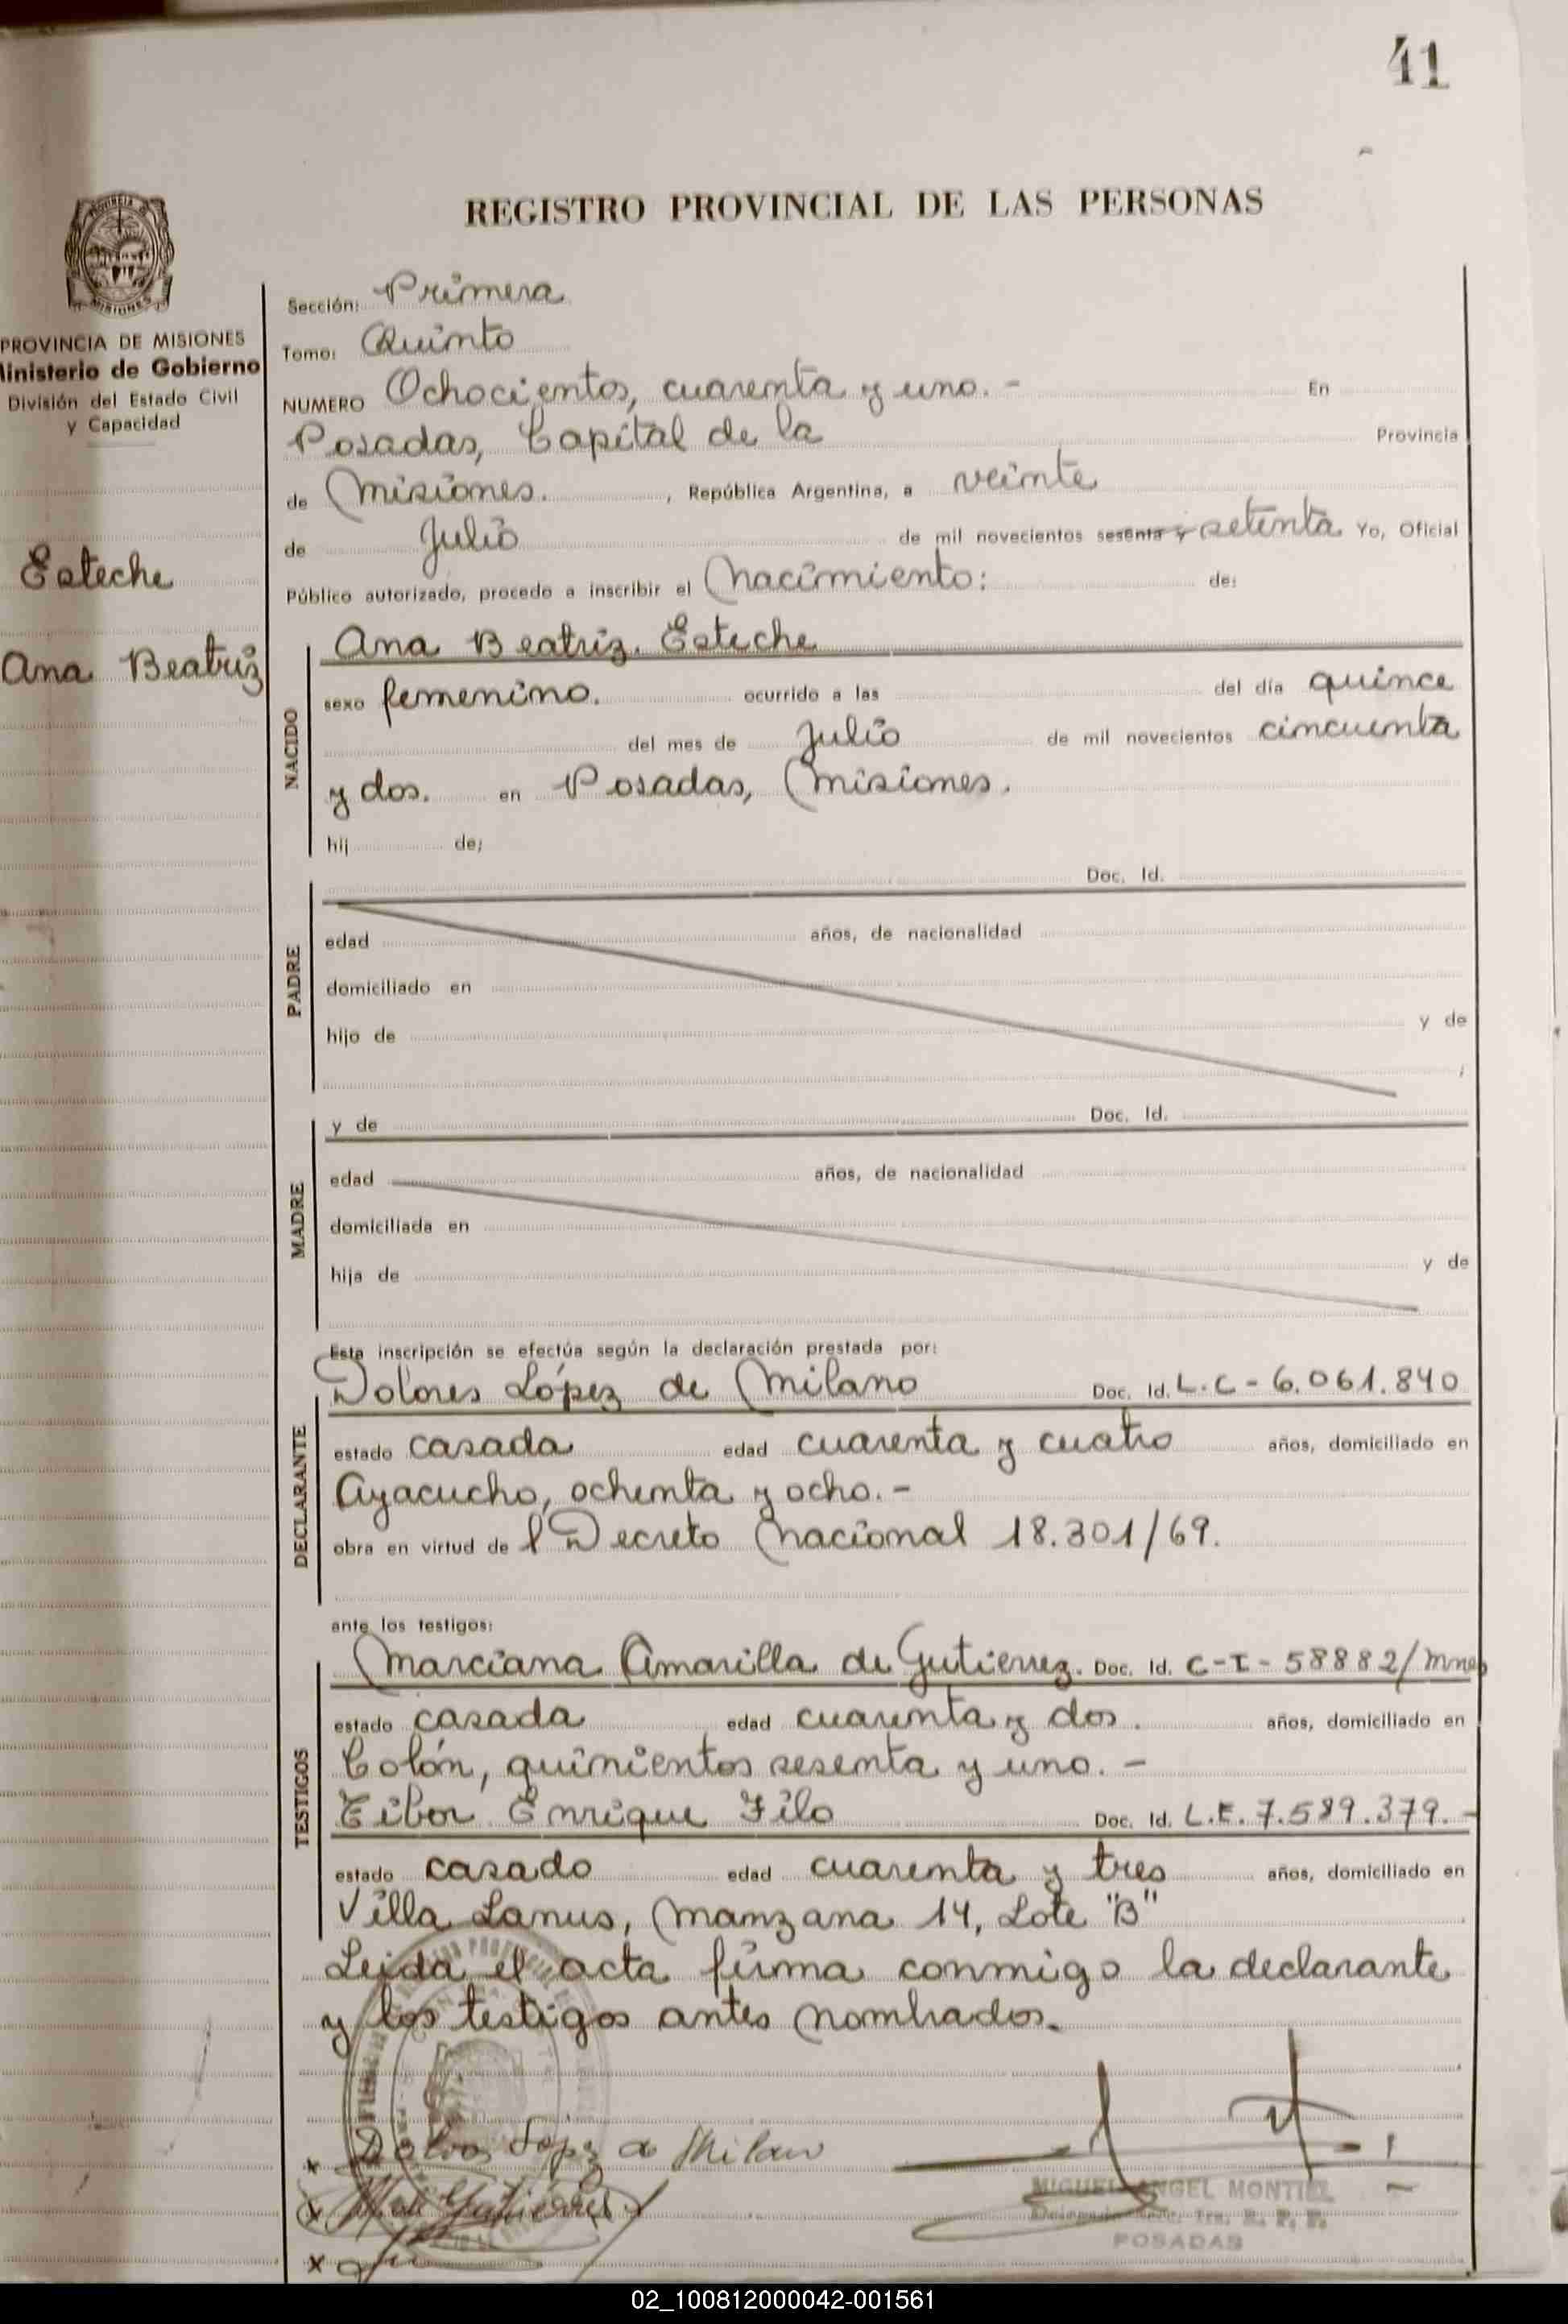 41
REGISTRO PROVINCIAL DE LAS PERSONAS
PROVINCIA DE MISIONES
Ministerio de Gobierno
División del Estado Civil
y Capacidad
Esteche
Ana Beatriz
Sección: Primera
Tomo: Quinto
NUMERO Ochocientos, cuarenta y uno.- En
Posadas, Capital de la Provincia
de Misiones. , República Argentina, a veinte
de Julio de mil novecientos sesenta y setenta Yo, Oficial
Público autorizado, procedo a inscribir el Nacimiento: de:
NACIDO
Ana Beatriz. Esteche
sexo femenino. ocurrido a las del día quince
del mes de Julio de mil novecientos cincuenta
y dos. en Posadas, Misiones.
hij de;
PADRE
Doc. Id.
edad años, de nacionalidad
domiciliado en
hijo de y de
;
MADRE
y de Doc. Id.
edad años, de nacionalidad
domiciliada en
hija de y de
Esta inscripción se efectúa según la declaración prestada por:
DECLARANTE
Dolores López de Milano Doc. Id. L.C-6.061.840
estado casada edad cuarenta y cuatro años, domiciliado en
Ayacucho, ochenta y ocho.-
obra en virtud de l Decreto Nacional 18.301/69.
ante los testigos:
TESTIGOS
Marciana Amarilla de Gutierrez. Doc. Id. C-I-58882/Mnes
estado casada edad cuarenta y dos. años, domiciliado en
Colón, quinientos sesenta y uno.-
Tibor Enrique Filo Doc. Id. L.E. 7.589.379.-
estado casado edad cuarenta y tres años, domiciliado en
Villa Lanus, Manzana 14, Lote "B"
Leida el acta firma conmigo la declarante
y los testigos antes nombrados.
x Dolores López de Milano
x M. de Gutiérrez
x
MIGUEL ANGEL MONTIEL
POSADAS
02_100812000042-001561